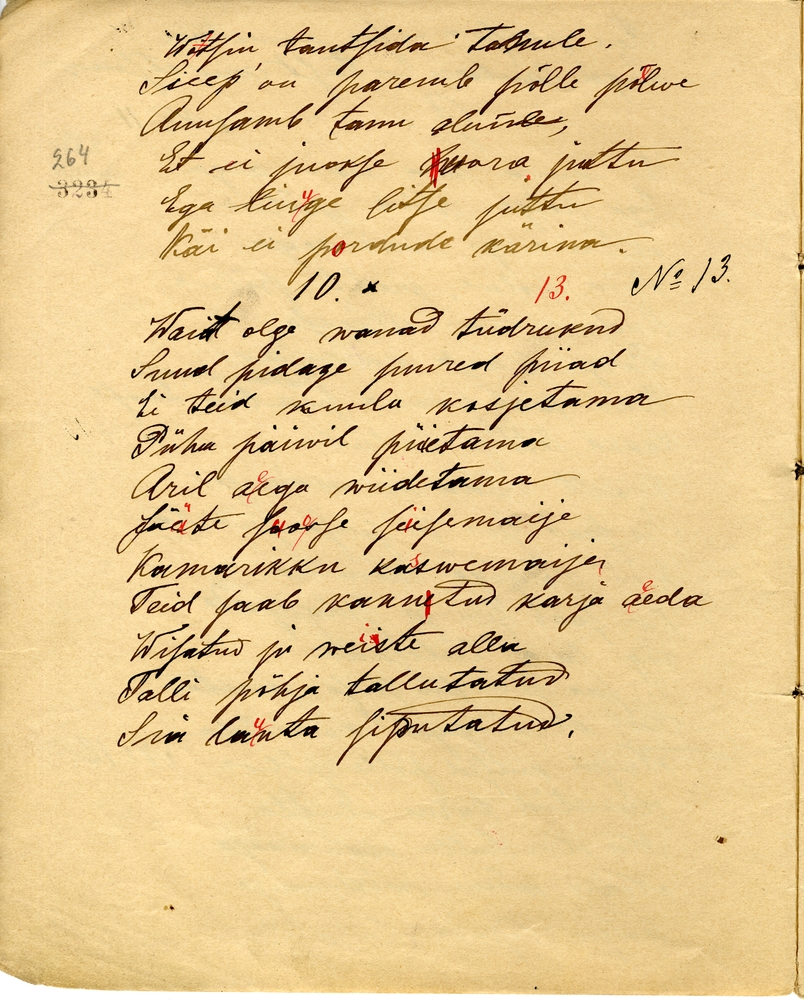 Wõtsin tantsida tahule.
Siiep' on paremb põlle põlwe
Annsamb tanu alune,
Et ei juokse huora juttu
Ega liuge litse juttu
Käi ei pordude kärina.
264
3234
10. × 13. № 13.
Wait olge wanad tüdrukud
Suud pidage suured piiad
Ei teid kuulu kosjetama
Püha päiwil püetama
Aril aega wiidetama
Jääte suosse seisemaije
Kamarikku kaswemaije
Teid saab kannetud karja aeda
Wisatud ju weiste alla
Talli põhja tallutatud
Sia lauta siputatud.